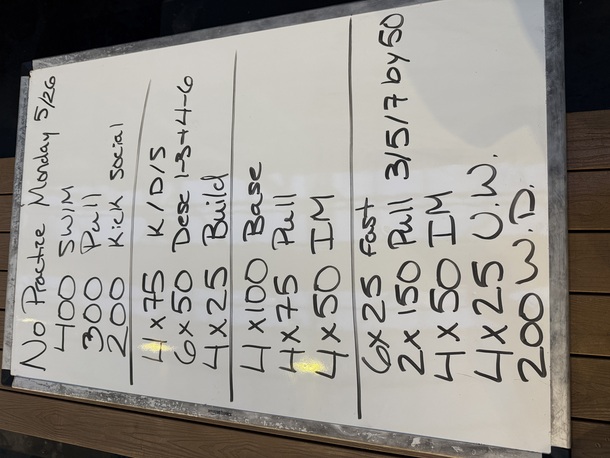 No Practice Monday 5/26
400 SWIM
300 Pull
200 Kick Social
4 x 75 K/D/S
6 x 50 Desc 1-3 + 4-6
4 x 25 Build
4 x 100 Base
4 x 75 Pull
4 x 50 IM
6 x 25 Fast
2 x 150 Pull 3/5/7 by 50
4 x 50 IM
4 x 25 U.W.
200 W.D.